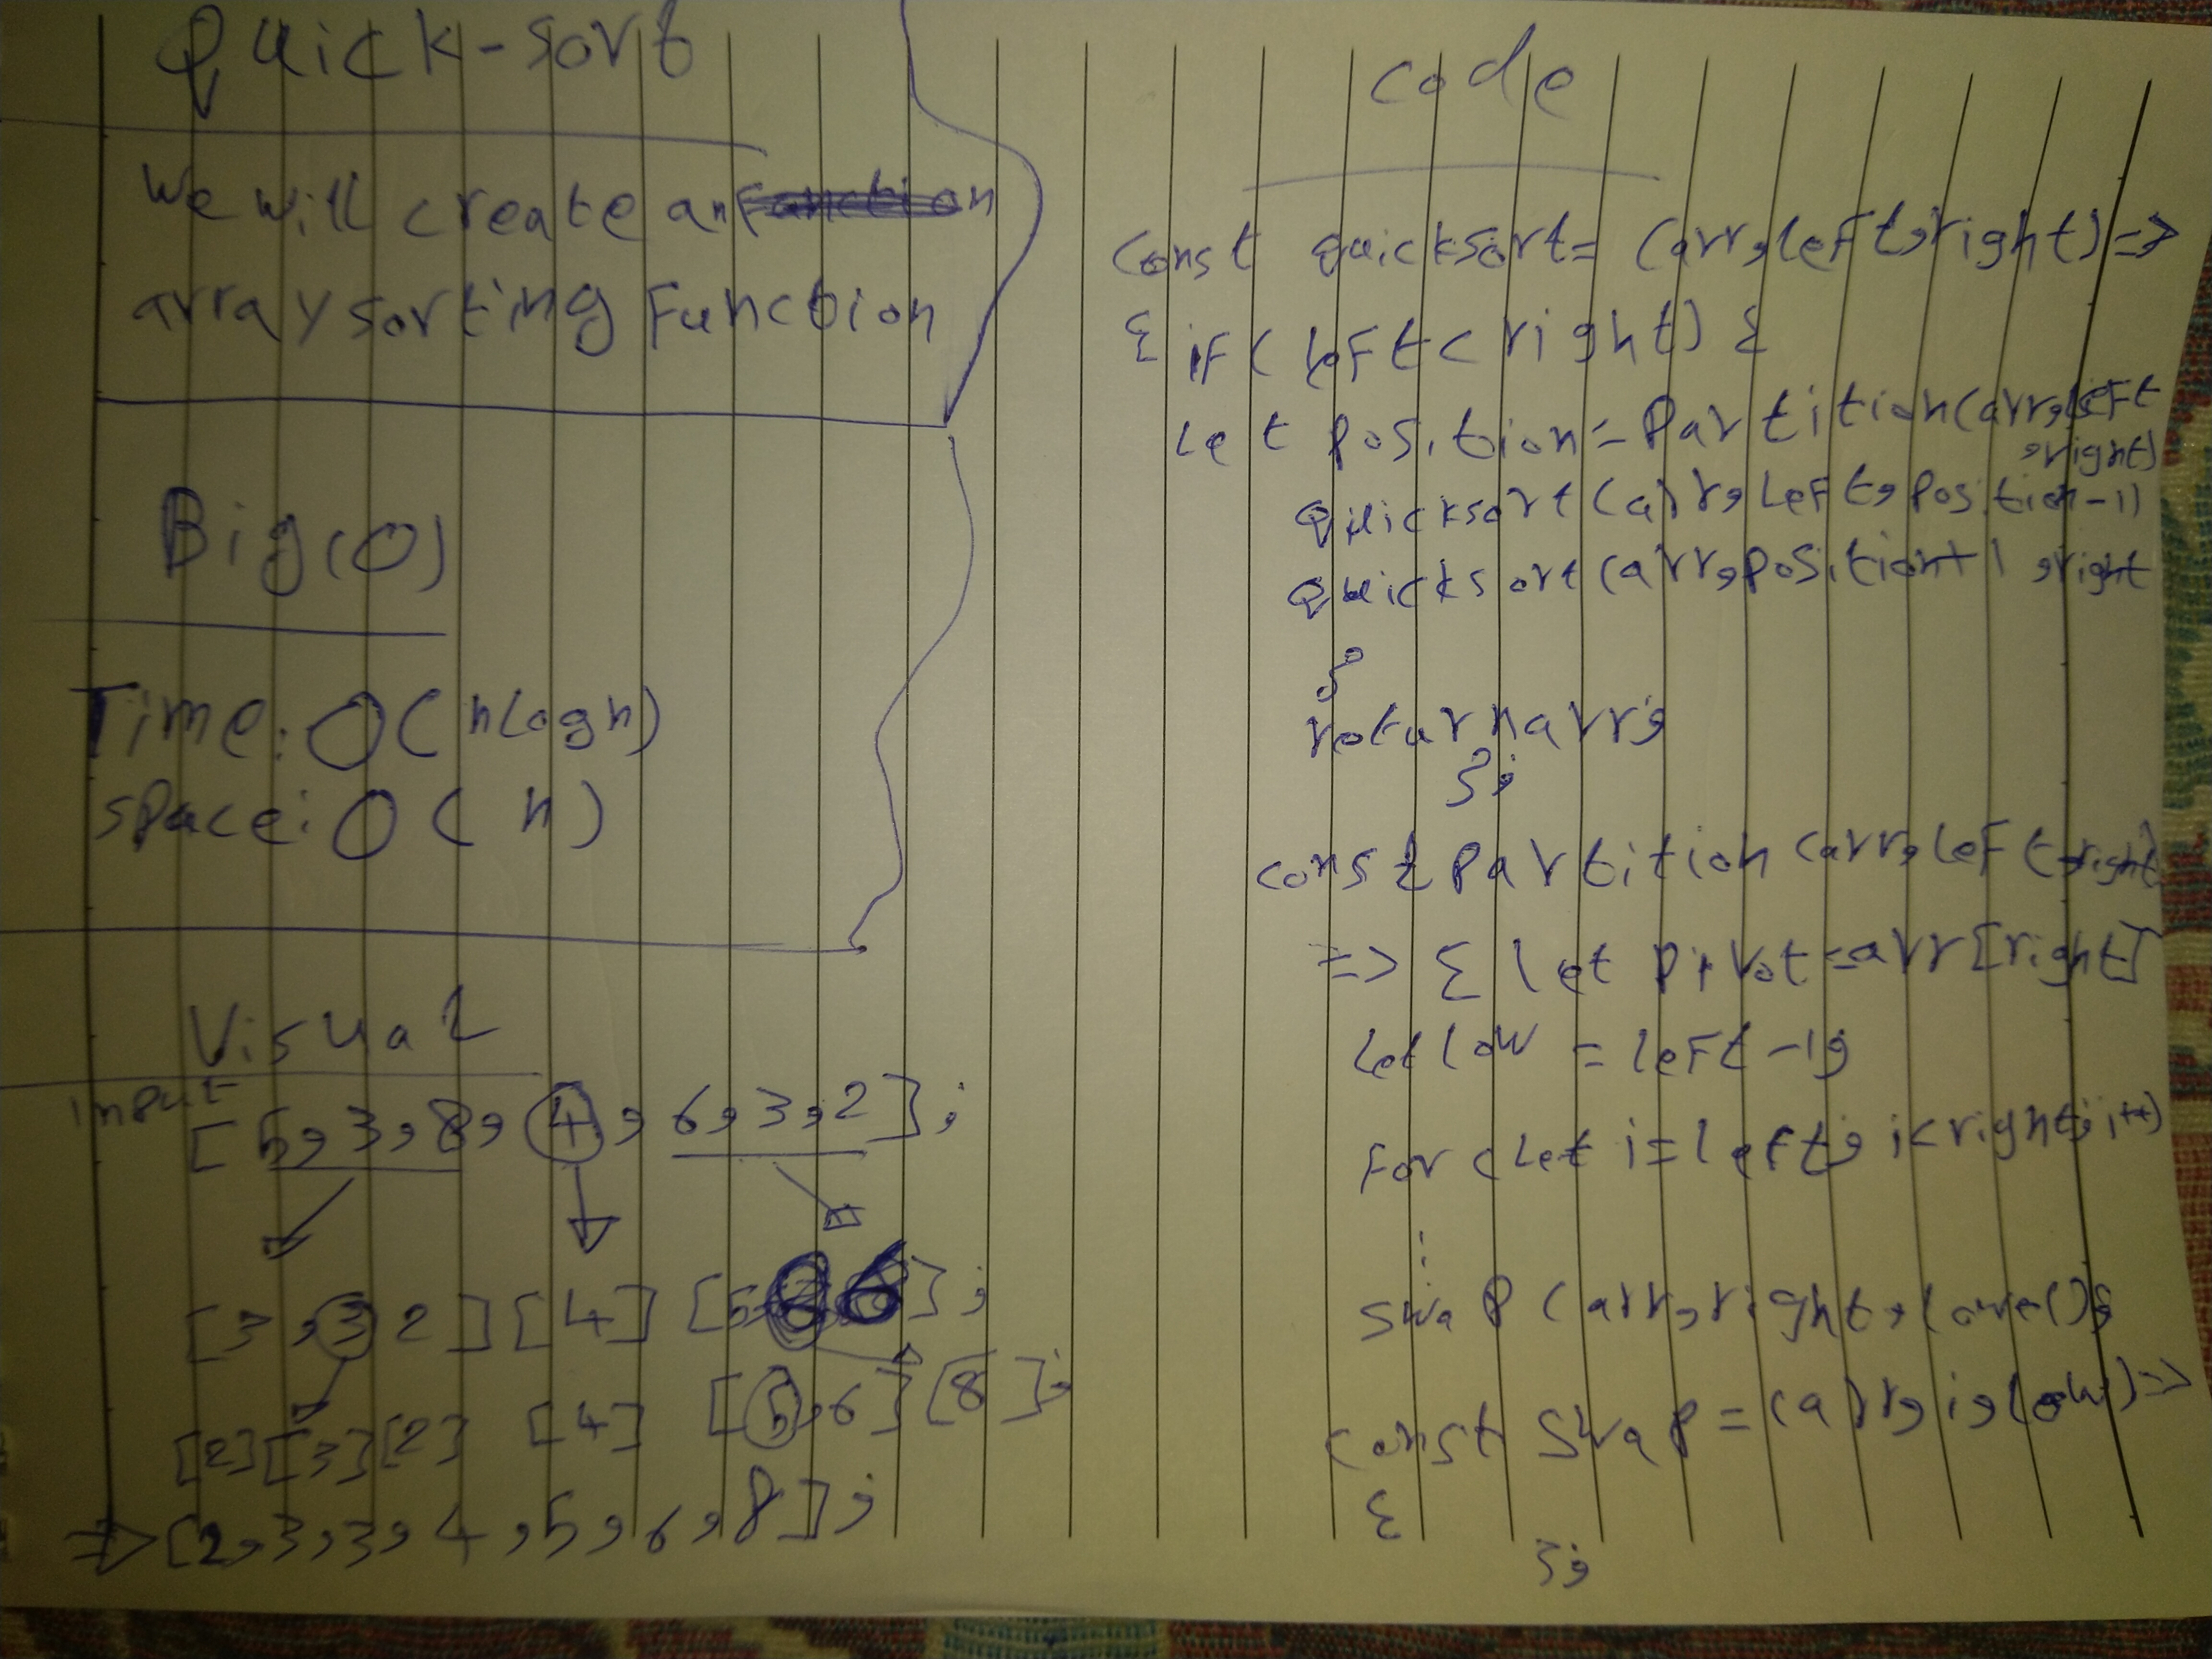 Quick-sort
we will create an
array sorting Function
Big(O)
Time: O(nlogn)
space: O(n)
Visual
input
[5,3,8,4,6,3,2];
[3,3,2][4][5,
[2][3][2] [4] [5,6][8];
=> [2,3,3,4,5,6,8];
code
const Quicksort=(arr,left,right)=>
{ if(left<right){
Let Position=Partition(arr,left
,right)
Quicksort(arr,left,Position-1)
Quicksort(arr,Position+1,right
}
return arr;
};
const Partition(arr,left,right)
=> { let pivot=arr[right]
Let low = left-1;
For(Let i=left; i<right; i++)
swap(arr,right,
const swap=(arr,i,low)=>
{
};